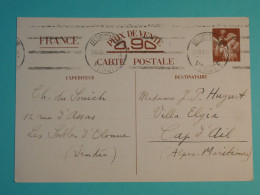 FRANCE
PRIX DE VENTE
0,90
CARTE POSTALE
EXPÉDITEUR
DESTINATAIRE
Ch. du
12 rue d'Assas
Les Sables d'Olonne
(Vendée)
Madame J. P. Huguet
Villa
Cap d'Ail
Alpes Maritimes